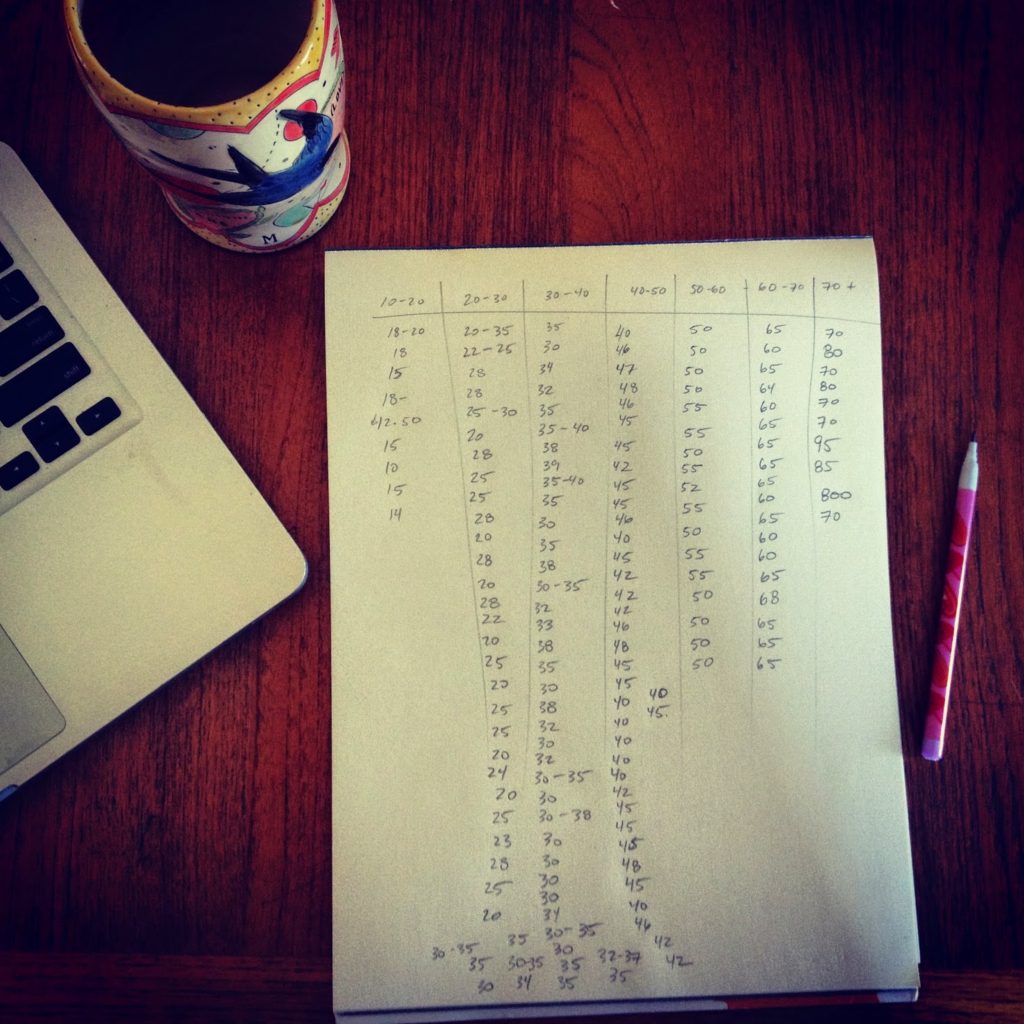 10-20 20-30 30-40 40-50 50-60 60-70 70+
18-20 20-35 35 40 50 65 70
18 22-25 30 46 50 60 80
15 28 34 47 50 65 70
18- 28 32 48 50 64 80
25-30 35 46 55 60 70
12.50 20 35-40 45 55 65 70
15 28 38 45 50 65 95
10 25 39 42 55 65 85
15 25 35-40 45 52 65
28 35 45 55 60 800
14 20 30 46 50 65 70
28 35 40 55 60
20 38 45 55 60
28 30-35 42 50 65
22 32 42 50 68
20 33 42 50 65
25 38 46 50 65
20 35 48 65
25 30 45
25 38 45 40
20 32 40 45
24 30 40
20 32 40
25 30-35 40
23 30 40
28 30-38 42
25 30 45
20 30 45
30 45
30 48
34 45
30-35 40
35 30 46
30-35 42
35 30-35 35 32-37 42
30 34 35 35
M
shift